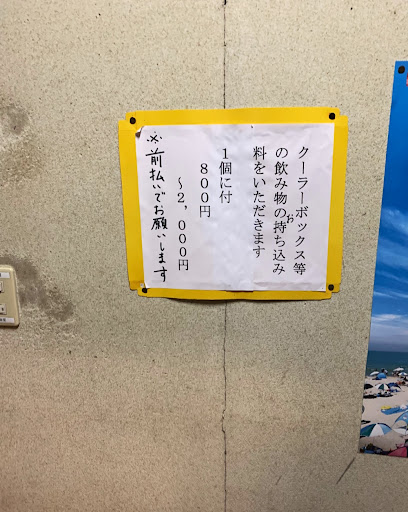 クーラーボックス等
の飲み物のお持ち込み
料をいただきます
1個に付
800円
~2,000円
※前払いでお願いします